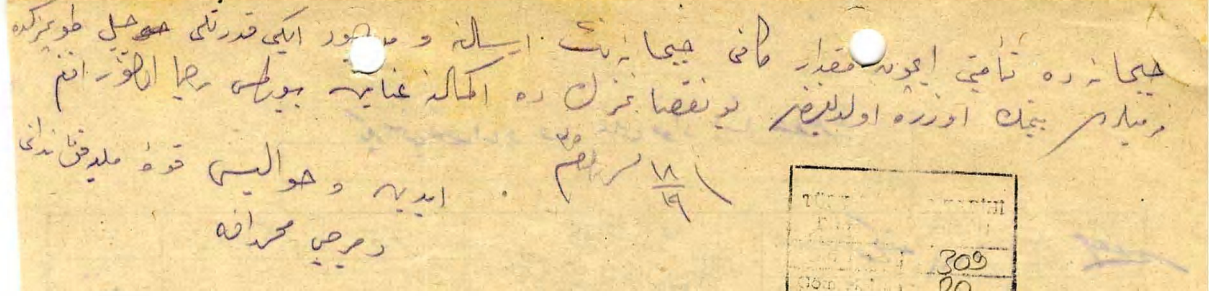 جبخانه ده تأمينى ايچون مقدار كافى جبخانه نك ارسالنه و موجود ايكى قدرتلى جبل طوپمزكده
بتمك اوزره اولديغندن بو نقصانمزك ده اكمالنه عنايت بيورلمسى رجا اولنور افندم
١٨/١٩
ايدين و حواليسى قوۀ مليه قوماندانى
دميرجى محمد افه
309
20